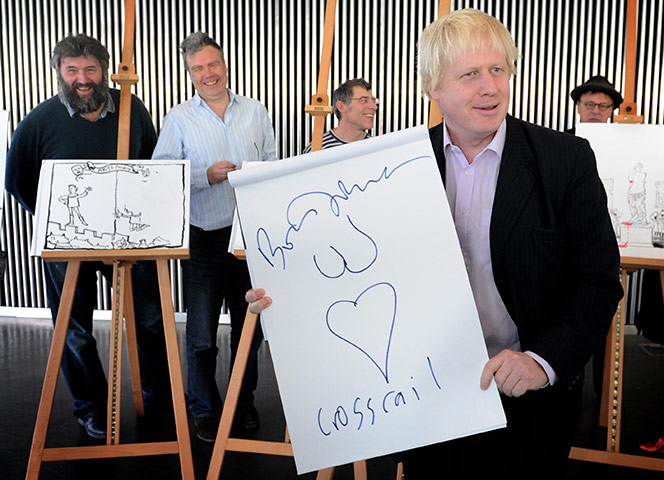 Boris Johnson
crossrail